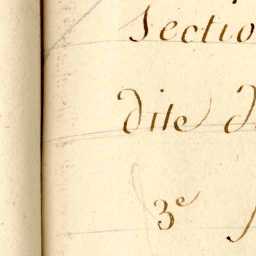 Sectio
dite d
3e